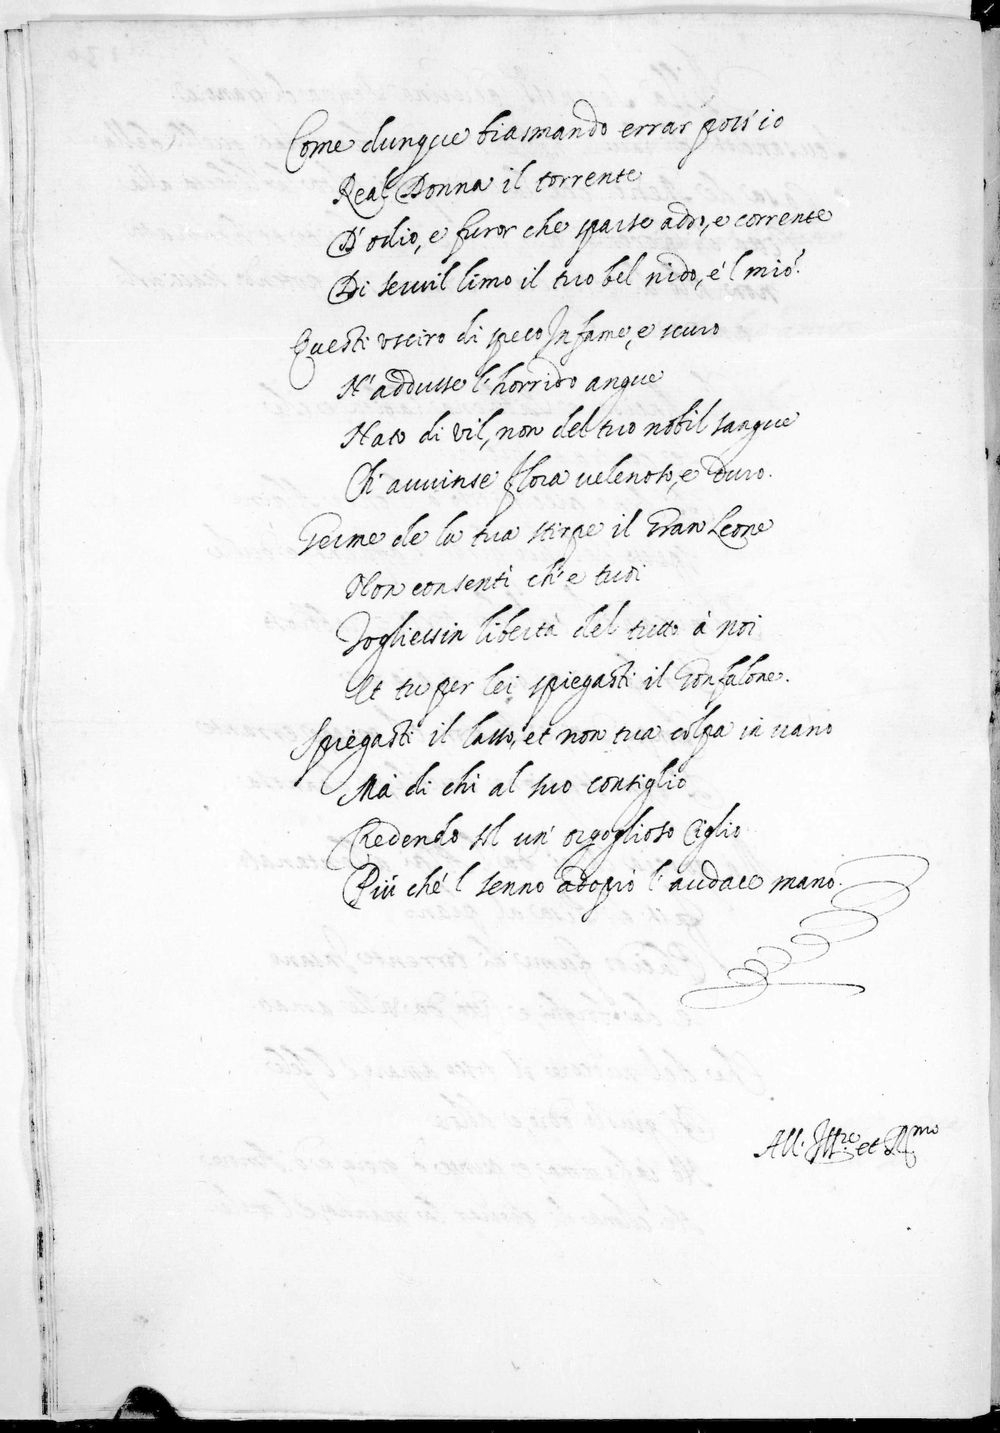 Come dunque biasmando errar poss'io
Real Donna il torrente
D'odio, e furor che sparse adro, e corrente
Di servil limo il tuo bel nido, e'l mio?
Questi usciro di speco Infame, e scuro
N'addusse l'horrido angue
Nato di vil, non del tuo nobil sangue
Ch'avvinse flora velenoso, e duro.
Germe de la tua stirpe il Gran Leone
Non consentì ch'e tuoi
Togliessin libertà del tutto à noi
Et tu per lei spiegasti il Gonfalone.
Spiegasti il lasso, et non tua colpa in vano
Mà di chi al suo consiglio
Credendo sol un' orgoglioso Ciglio
Più ché'l senno adoprò l'audace mano.
All. Ill.re et R.mo